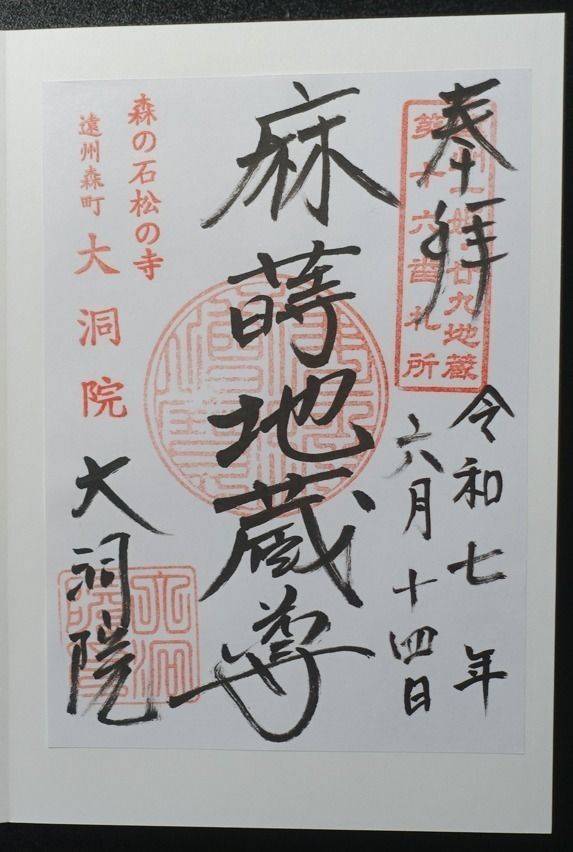 奉拝
第十六番札所
令和七年
六月十四日
麻蒔地蔵尊
森の石松の寺
遠州森町 大洞院
大洞院